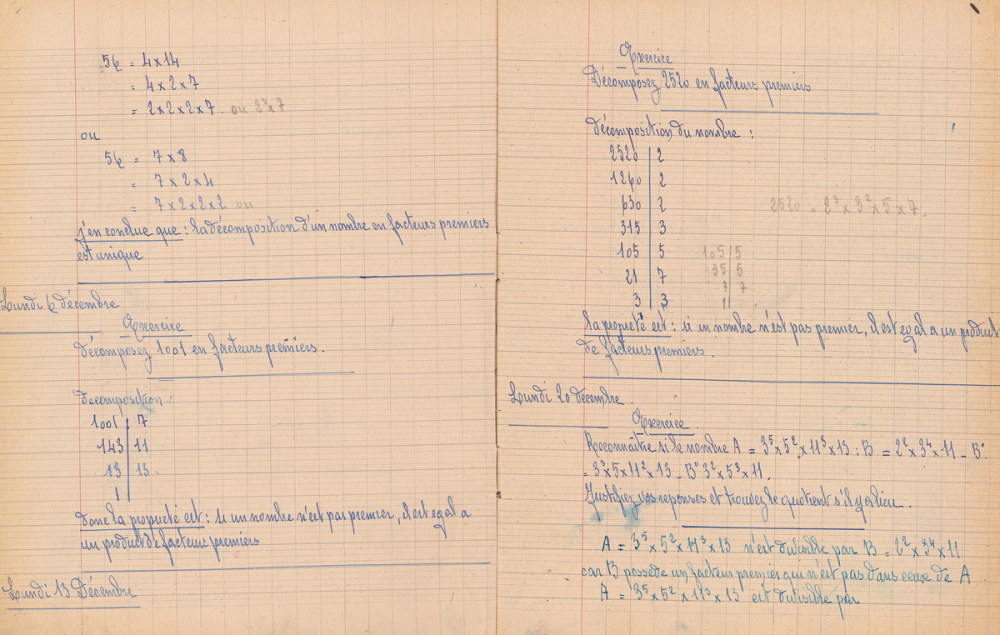 56 = 4 x 14
= 4 x 2 x 7
= 2 x 2 x 2 x 7. ou 2³ x 7
ou
56 = 7 x 8
= 7 x 2 x 4
= 7 x 2 x 2 x 2 ou
j'en conclue que : la décomposition d'un nombre en facteurs premiers
est unique
Lundi 6 décembre
Exercice
Décomposez 1001 en facteurs premiers.
Décomposition :
1001 | 7
143 | 11
13 | 13
1 |
donc la propreté est : si un nombre n'est pas premier, il est egal a
un product de facteurs premiers
Lundi 13 Décembre
Exercice
Décomposez 2520 en facteurs premiers
décomposition du nombre :
2520 | 2
1260 | 2
630 | 2
2520 = 2³ x 3² x 5 x 7.
315 | 3
105 | 5
105 | 5
21 | 7
35 | 5
7 | 7
3 | 3
1 |
la propreté est : si un nombre n'est pas premier, il est egal a un product
de facteurs premiers.
Lundi 20 décembre.
Exercice
Reconnaître si le nombre A = 3⁵ x 5² x 11³ x 13 : B = 2² x 3⁴ x 11 - B'
= 3³ x 5 x 11² x 13 - B" 3² x 5³ x 11.
Justifiez vos reponses et trouvez le quotient s'il y a lieu.
A = 3⁵ x 5² x 11³ x 13 n'est divisible par B = 2² x 3⁴ x 11
car B possède un facteur premier qui n'est pas dans ceux de A
A = 3⁵ x 5² x 11³ x 13 est divisible par